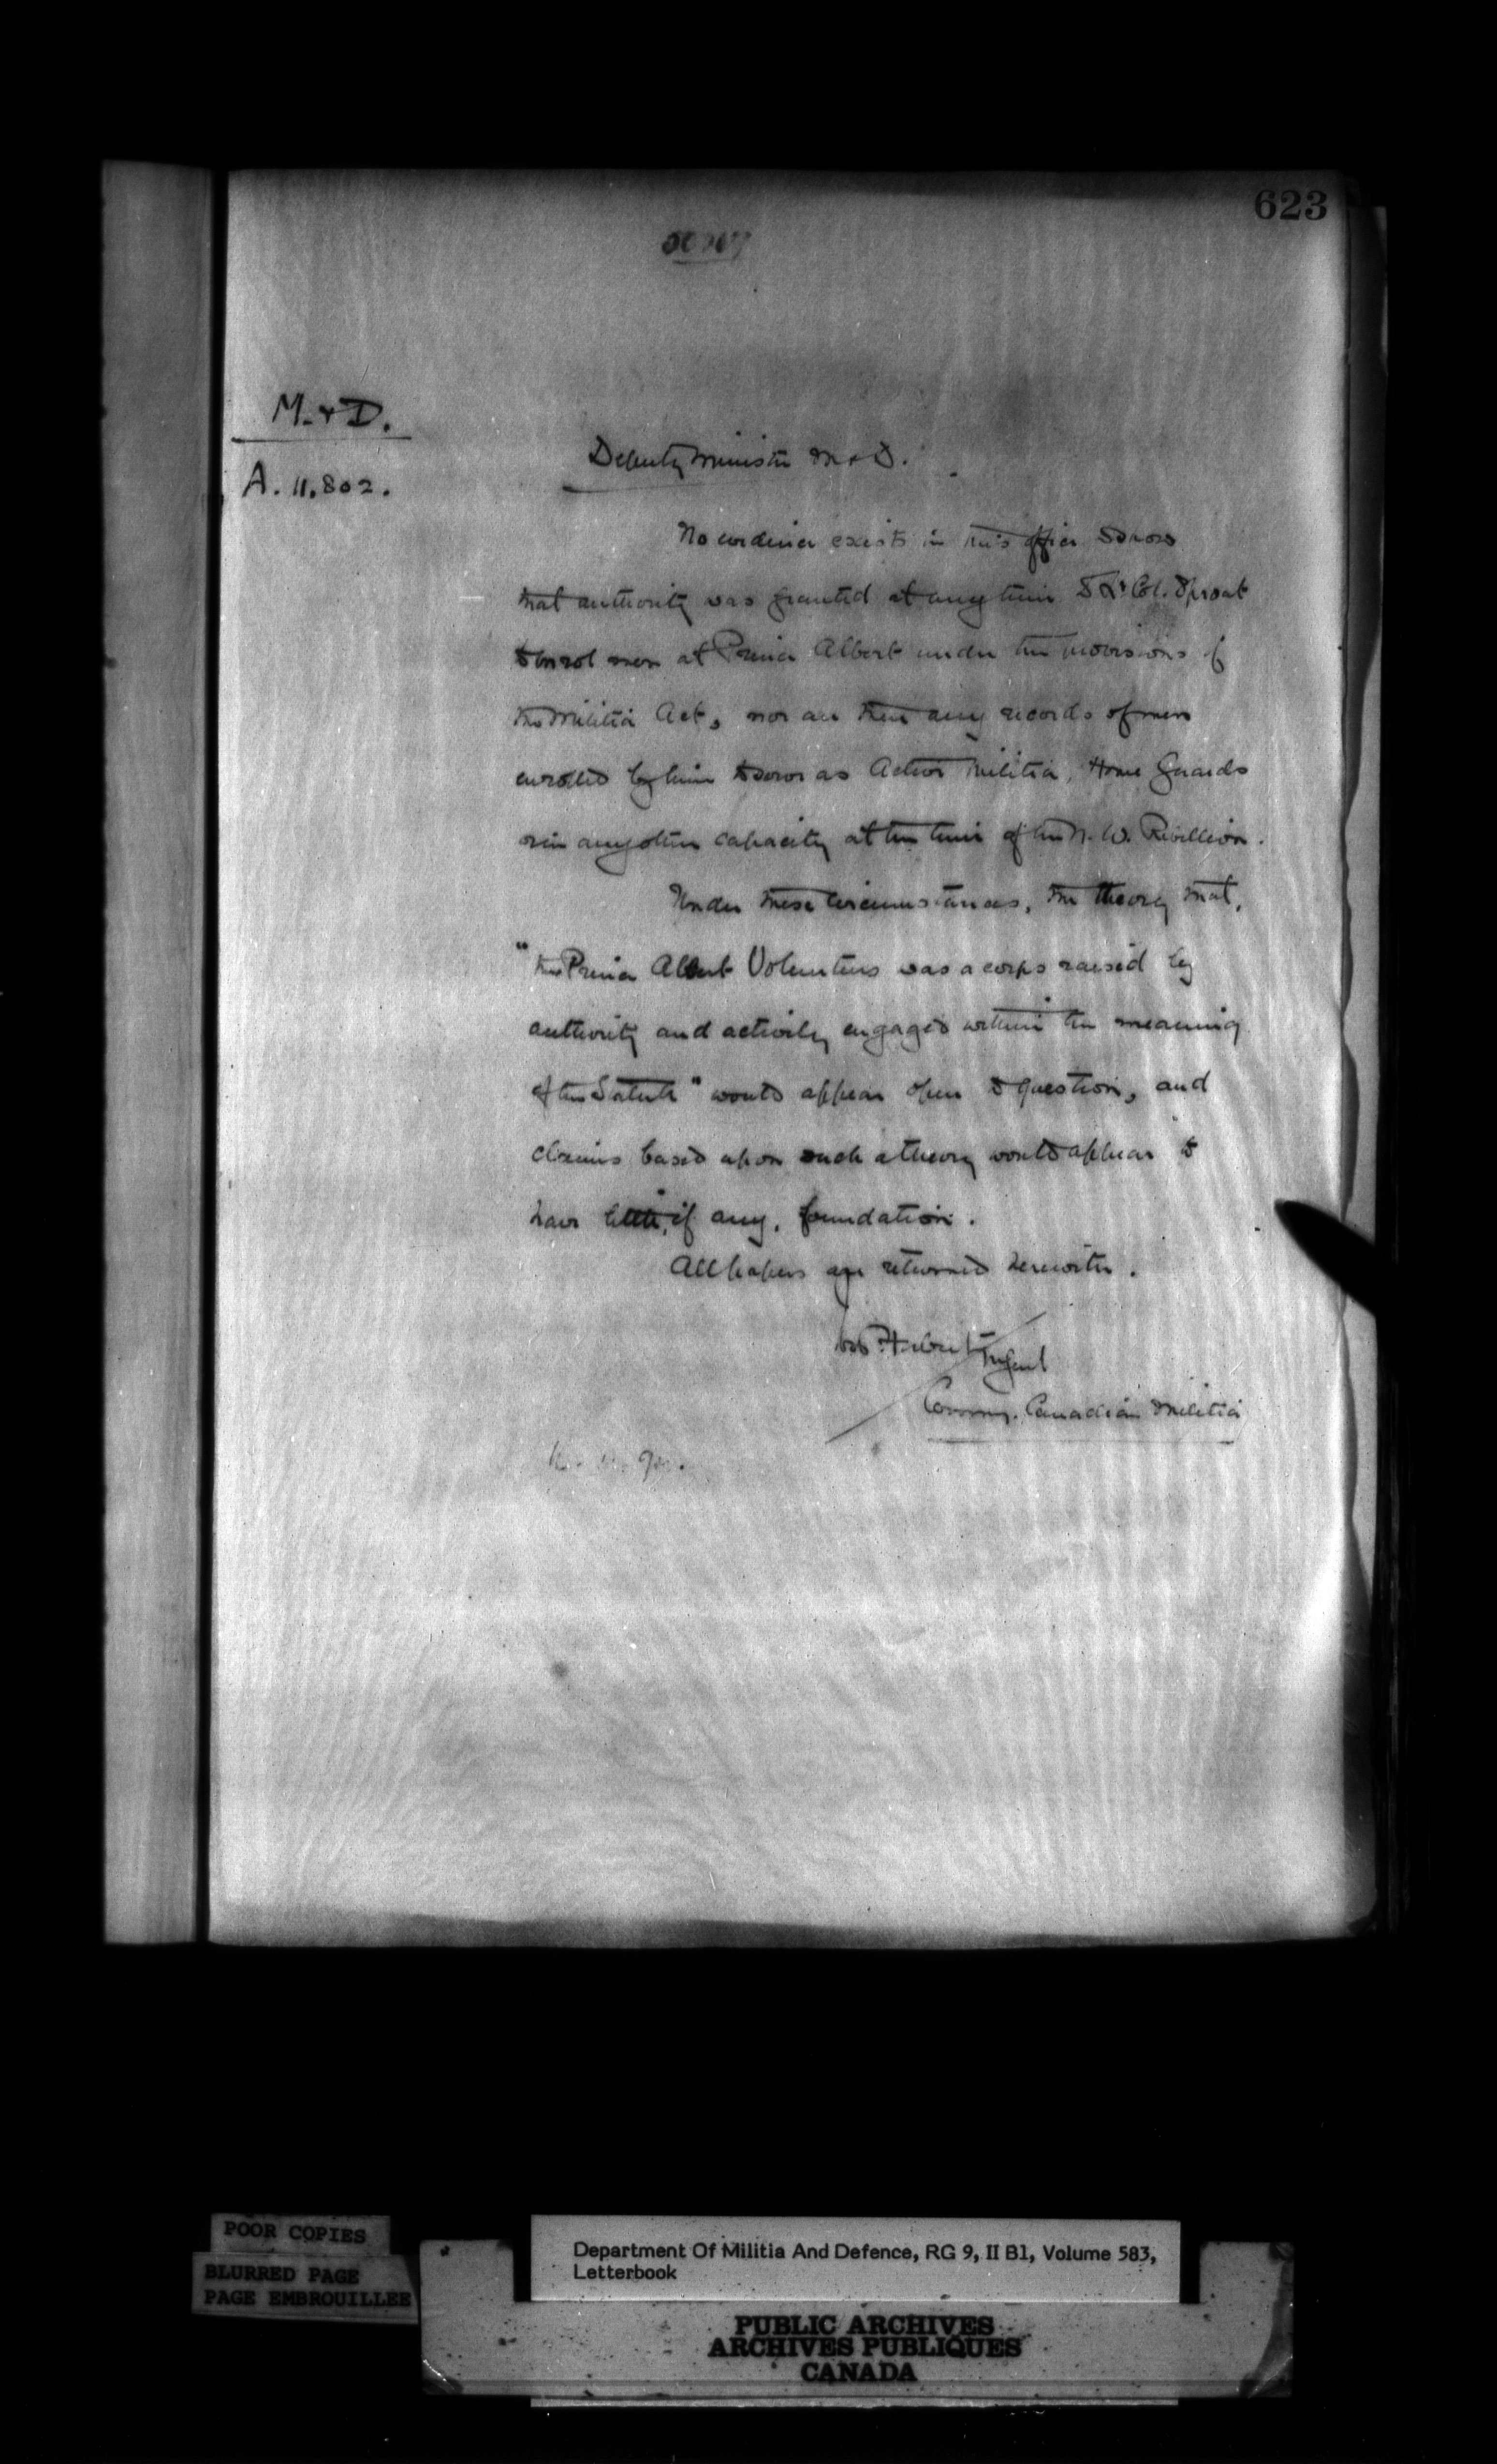 623
M. & D.
A. 11,802.
Deputy Minister M & D.
No evidence exists in this office to show
that authority was granted at any time to Lt Col. Sproat
to enrol men at Prince Albert under the provisions of
the Militia Act, nor are there any records of men
enrolled by him to serve as Active Militia, Home Guards
or in any other capacity at the time of the N. W. Rebellion.
Under these circumstances, the theory that,
"the Prince Albert Volunteers was a corps raised by
authority and actively engaged within the meaning
of the Statute" would appear open to question, and
claims based upon such a theory would appear to
have little, if any, foundation.
All papers are returned herewith.
Herbert
Commg. Canadian Militia
POOR COPIES
BLURRED PAGE
PAGE EMBROUILLEE
Department Of Militia And Defence, RG 9, II B1, Volume 583,
Letterbook
PUBLIC ARCHIVES
ARCHIVES PUBLIQUES
CANADA